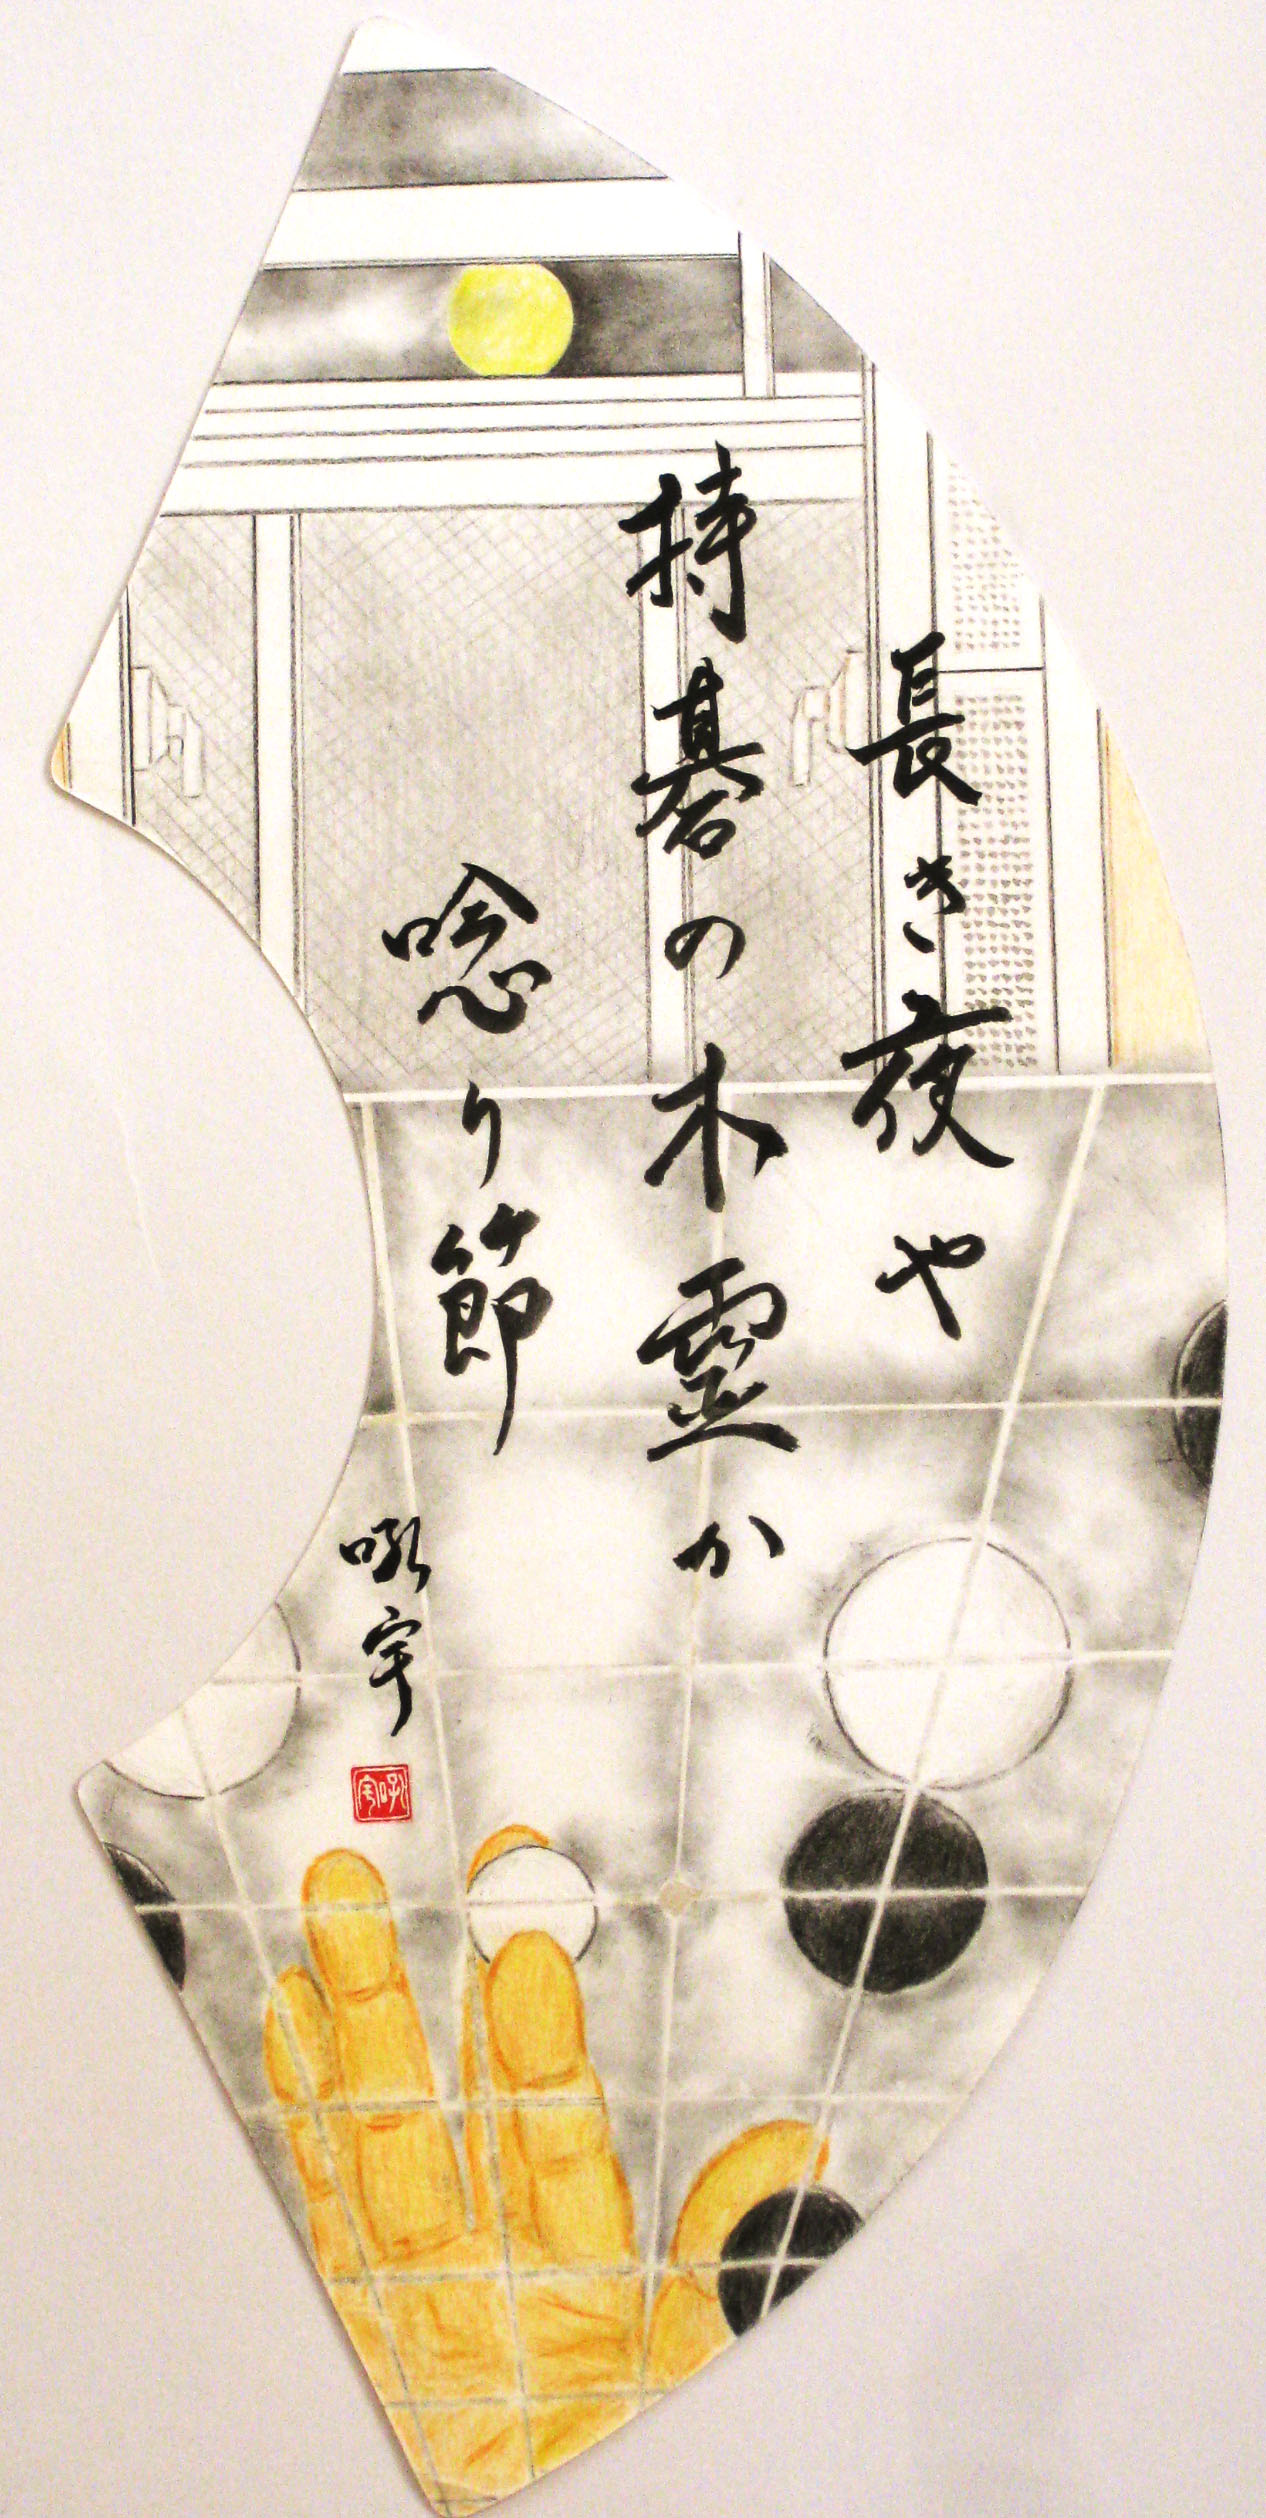 長き夜や
持碁の木霊か
唸り節
吼宇